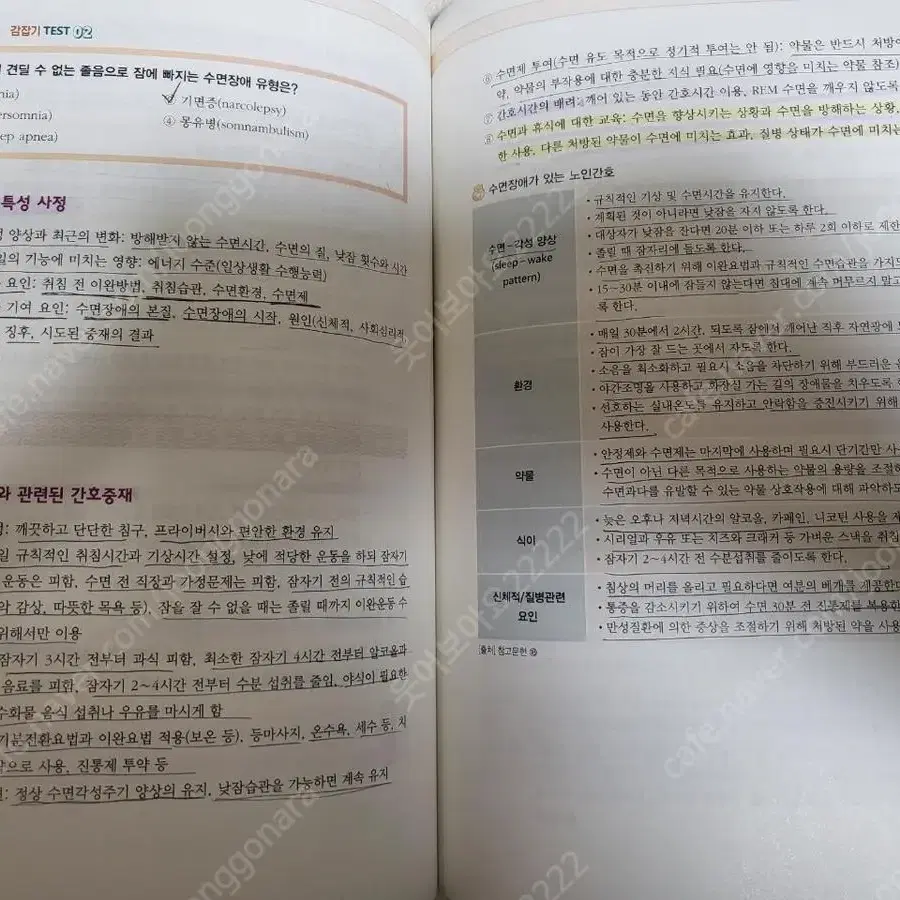 감잡기 TEST 02
견딜 수 없는 졸음으로 잠에 빠지는 수면장애 유형은?
기면증(narcolepsy)
ersomnia)
④ 몽유병(somnambulism)
ep apnea)
특성 사정
양상과 최근의 변화: 방해받지 않는 수면시간, 수면의 질, 낮잠 횟수와 시간
일의 기능에 미치는 영향: 에너지 수준(일상생활 수행능력)
요인: 취침 전 이완방법, 취침습관, 수면환경, 수면제
기여 요인: 수면장애의 본질, 수면장애의 시작, 원인(신체적, 사회심리적)
징후, 시도된 중재의 결과
와 관련된 간호중재
: 깨끗하고 단단한 침구, 프라이버시와 편안한 환경 유지
일 규칙적인 취침시간과 기상시간 설정, 낮에 적당한 운동을 하되 잠자기
운동은 피함, 수면 전 직장과 가정문제는 피함, 잠자기 전의 규칙적인 습
악 감상, 따뜻한 목욕 등), 잠을 잘 수 없을 때는 졸릴 때까지 이완운동 수
위해서만 이용
잠자기 3시간 전부터 과식 피함, 최소한 잠자기 4시간 전부터 알코올과
음료를 피함, 잠자기 2~4시간 전부터 수분 섭취를 줄임, 야식이 필요한
수화물 음식 섭취나 우유를 마시게 함
기분전환요법과 이완요법 적용(보온 등), 등마사지, 온수욕, 세수 등, 치
약으로 사용, 진통제 투약 등
: 정상 수면각성주기 양상의 유지, 낮잠습관을 가능하면 계속 유지
⑥ 수면제 투여(수면 유도 목적으로 정기적 투여는 안 됨): 약물은 반드시 처방이
약, 약물의 부작용에 대한 충분한 지식 필요(수면에 영향을 미치는 약물 참조)
⑦ 간호시간의 배려: 깨어 있는 동안 간호시간 이용, REM 수면을 깨우지 않도록
⑧ 수면과 휴식에 대한 교육: 수면을 향상시키는 상황과 수면을 방해하는 상황,
한 사용, 다른 처방된 약물이 수면에 미치는 효과, 질병 상태가 수면에 미치는
수면장애가 있는 노인간호
수면-각성 양상
(sleep-wake
pattern)
• 규칙적인 기상 및 수면시간을 유지한다.
• 계획된 것이 아니라면 낮잠을 자지 않도록 한다.
• 대상자가 낮잠을 잔다면 20분 이하 또는 하루 2회 이하로 제한
• 졸릴 때 잠자리에 들도록 한다.
• 수면을 촉진하기 위해 이완요법과 규칙적인 수면습관을 가지도
• 15~30분 이내에 잠들지 않는다면 침대에 계속 머무르지 말고
록 한다.
환경
• 매일 30분에서 2시간, 되도록 잠에서 깨어난 직후 자연광에
• 잠이 가장 잘 드는 곳에서 자도록 한다.
• 소음을 최소화하고 필요시 소음을 차단하기 위해 부드러운
• 야간조명을 사용하고 화장실 가는 길의 장애물을 치우도록
• 선호하는 실내온도를 유지하고 안락함을 증진시키기 위해
사용한다.
약물
• 안정제와 수면제는 마지막에 사용하며 필요시 단기간만
• 수면이 아닌 다른 목적으로 사용하는 약물의 용량을 조절하
수면과다를 유발할 수 있는 약물 상호작용에 대해 파악하도
식이
• 늦은 오후나 저녁시간의 알코올, 카페인, 니코틴 사용을
• 시리얼과 우유 또는 치즈와 크래커 등 가벼운 스낵을 취침
• 잠자기 2~4시간 전 수분섭취를 줄이도록 한다.
신체적/질병관련
요인
• 침상의 머리를 올리고 필요하다면 여분의 베개를 제공한다
• 통증을 감소시키기 위하여 수면 30분 전 진통제를 복용한
• 만성질환에 의한 증상을 조절하기 위해 처방된 약을 사용
[출처] 참고문헌